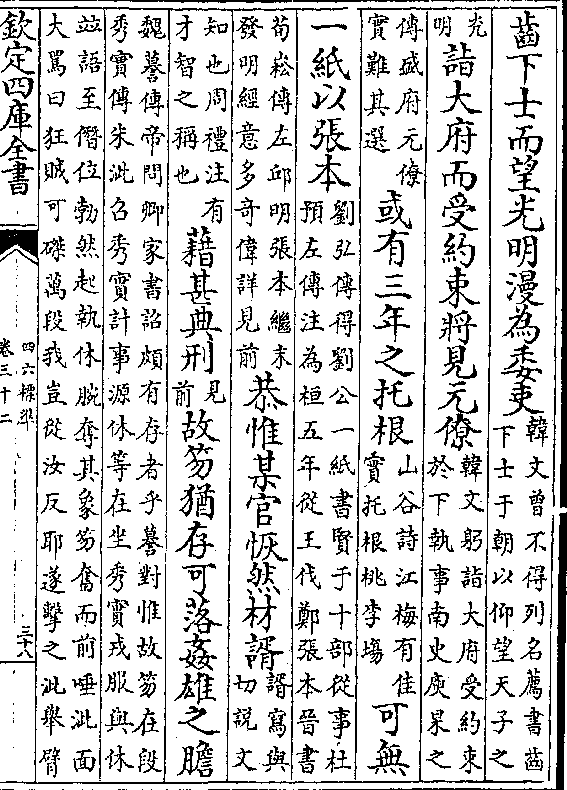 齒下士而望光明漫為委吏韓文曾不得列名薦書齒下士于朝以仰望天子之
光明詣大府而受約束將見元僚韓文躬詣大府受約束於下執事南史庾杲之
傳盛府元僚實難其選或有三年之托根山谷詩江梅有佳實托根桃李塲可無
一紙以張本劉弘傳得劉公一紙書賢于十部從事杜預左傳注為桓五年從王伐鄭張本晉書
荀崧傳左邱明張本繼末發明經意多奇偉詳見前恭惟某官恢然材諝諝寫與切説文
知也周禮注有才智之稱也藉甚典刑見前故笏猶存可落姦雄之膽
魏謩傳帝問卿家書詔頗有存者乎謩對惟故笏在段秀實傳朱泚召秀實計事源休等在坐秀實戎服與休
竝語至僭位勃然起執休腕奪其象笏奮而前唾泚面大罵曰狂賊可磔萬段我豈從汝反耶遂擊之泚舉臂
欽定四庫全書
四六標準
卷三十二
三十八